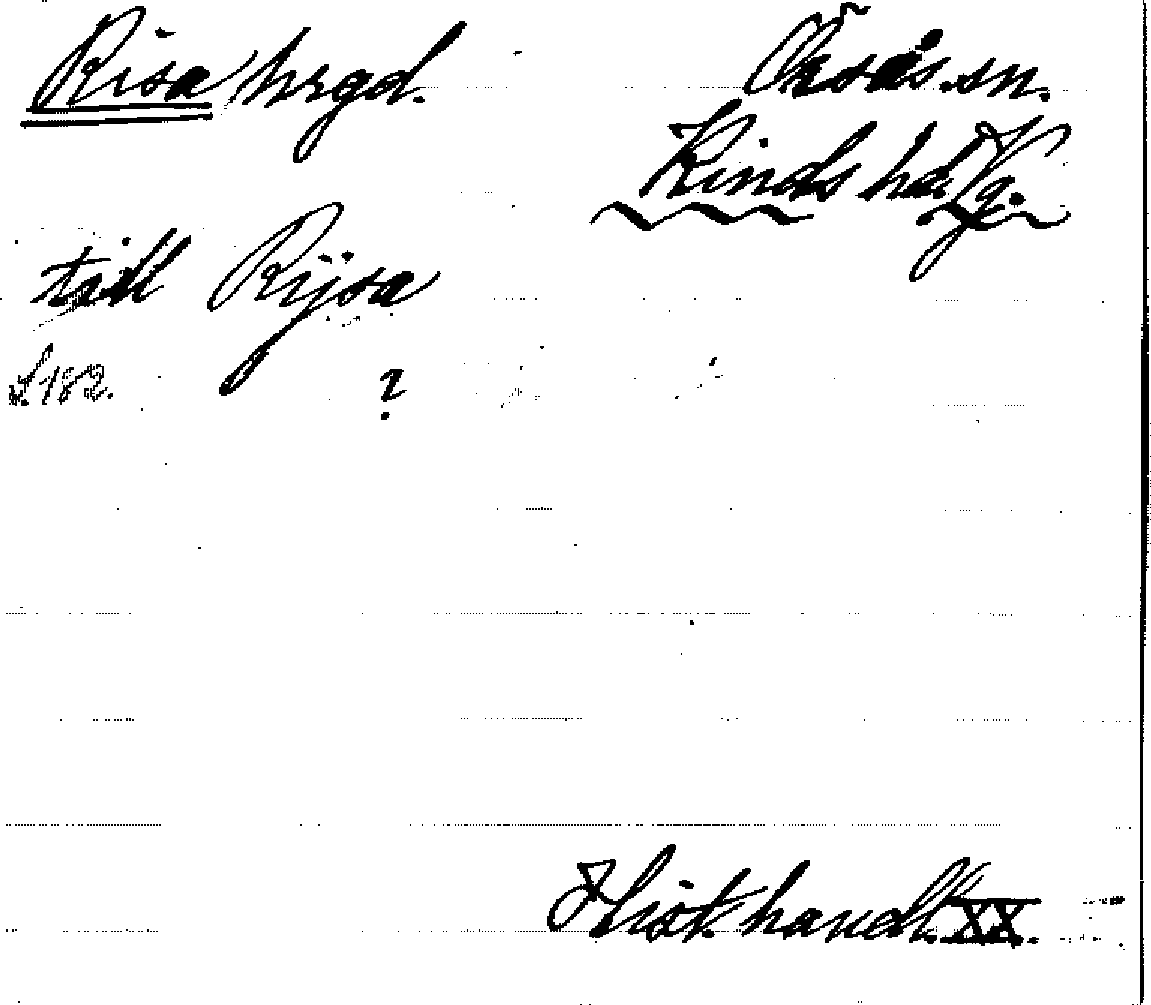 Risa hrgd. Öxsås. sn.
Kinds hd. Vg.
till Rijsa
S. 182. ?
Hist. handl. XX.